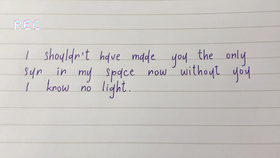 I shouldn't have made you the only
sun in my space now without you
I know no light.